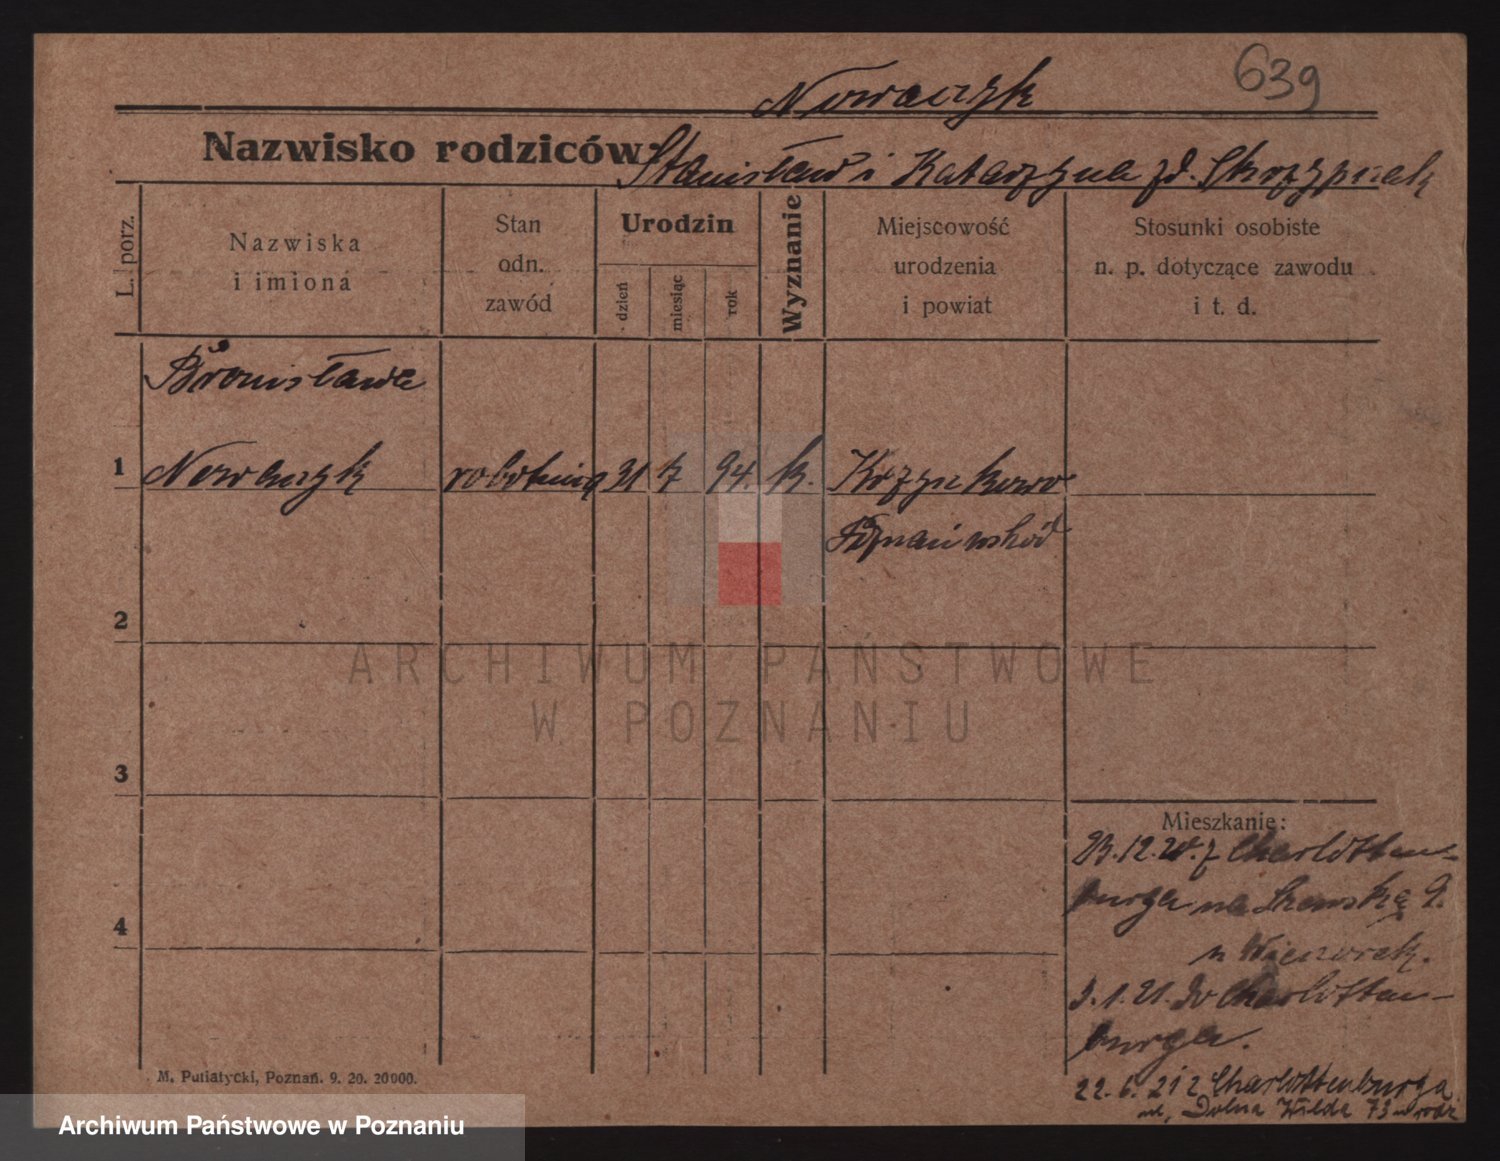 639
Nowaczyk
Nazwisko rodziców: Stanisław i Katarzyna zd. Skrzypczak
L. porz.
Nazwiska
i imiona
Stan
odn.
zawód
Urodzin
dzień
miesiąc
rok
Wyznanie
Miejscowość
urodzenia
i powiat
Stosunki osobiste
n. p. dotyczące zawodu
i t. d.
Bronisława
1 Nowaczyk robotnica 31 7 94. k.
Poznań wschód
2
ARCHIWUM PAŃSTWOWE
W POZNANIU
3
Mieszkanie:
23.12.20. z Charlotten-
burga na 9.
4
u Wieczorek.
3.1.21. do Charlotten-
burga.
22.6.21 z Charlottenburga
ul. Dolna Wilda 73 u rodz
M. Putiatycki, Poznań. 9. 20. 20000.
Archiwum Państwowe w Poznaniu